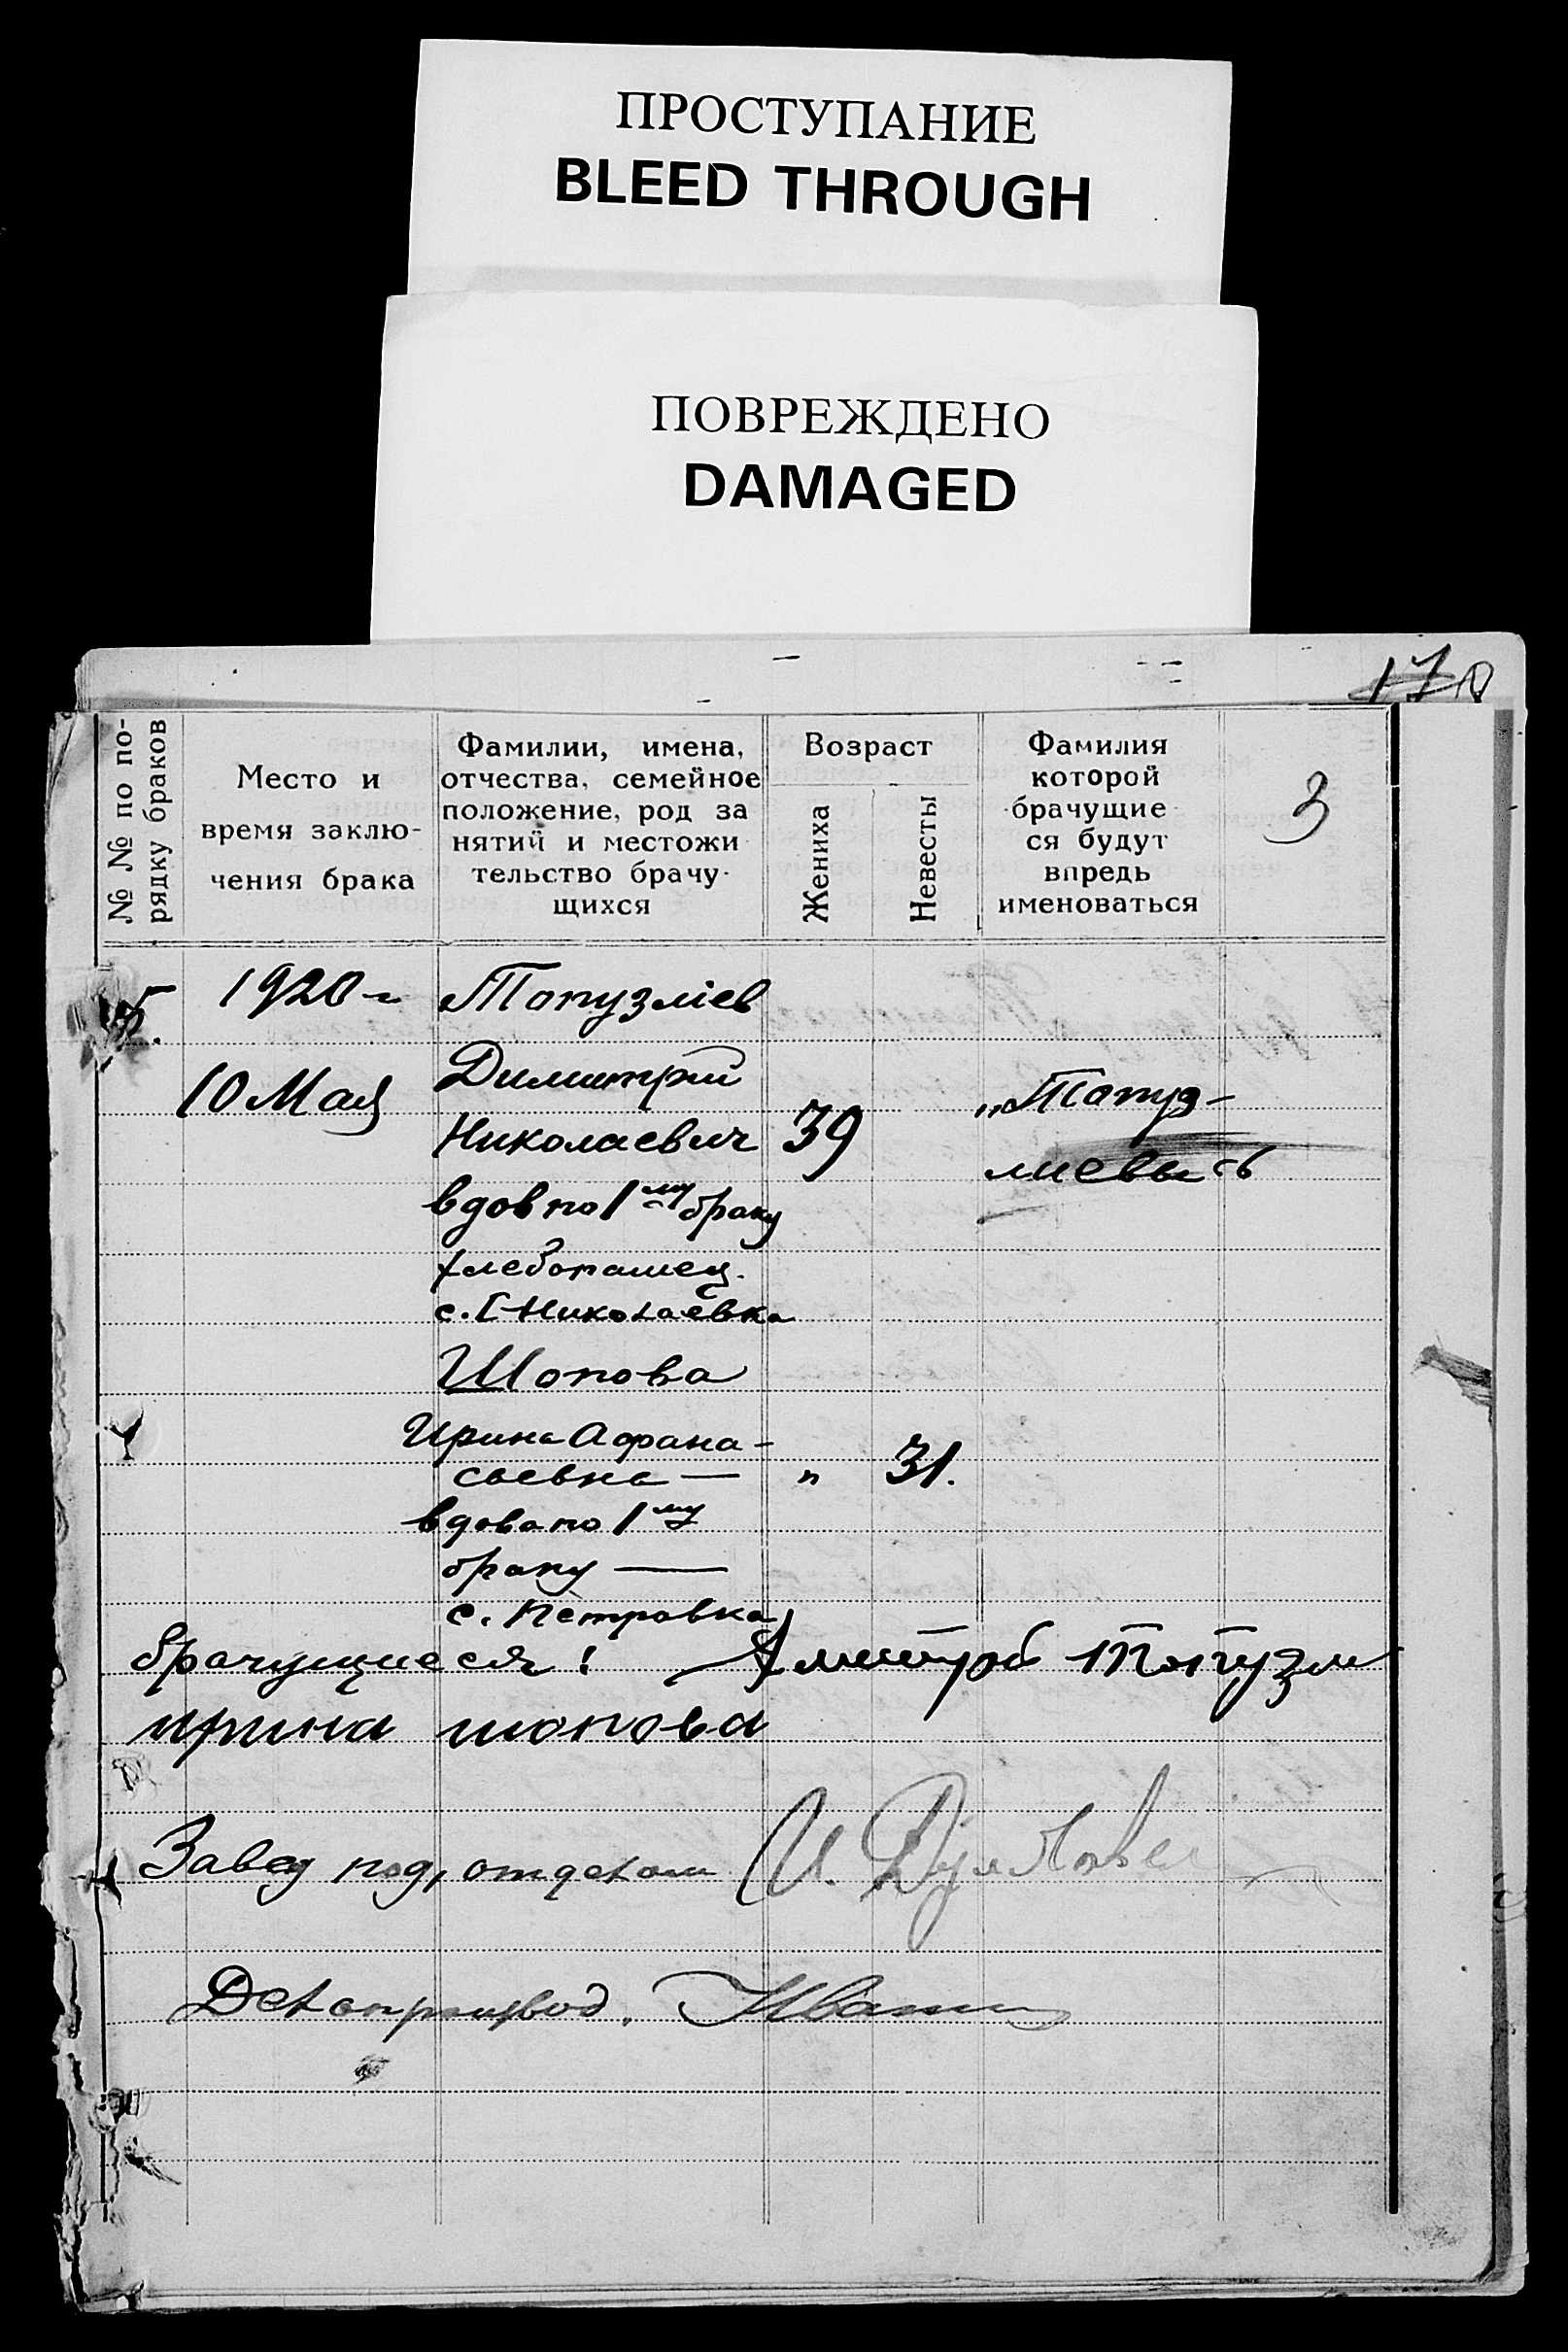 ПРОСТУПАНИЕ
BLEED THROUGH
ПОВРЕЖДЕНО
DAMAGED
№ № по по-
рядку браков
Место и
время заклю-
чения брака
Фамилии, имена,
отчества, семейное
положение, род за
нятий и местожи
тельство брачу-
щихся
Возраст
Жениха
Невесты
Фамилия
которой
брачущие
ся будут
впредь
именоваться
3
5.
1920 г
10 Мая
Топузлiев
Димитрий
Николаевич
вдов по 1му браку
хлебопашец.
с. Николаевка
39
„Топуз-
лиевы
Шопова
Ирина Афана-
сьевна —
вдова по 1му
браку —
с. Петровка
" 31.
брачущиеся:
Топузли
ирина шопова
Завед под, отделом И.
Делопроизвод.